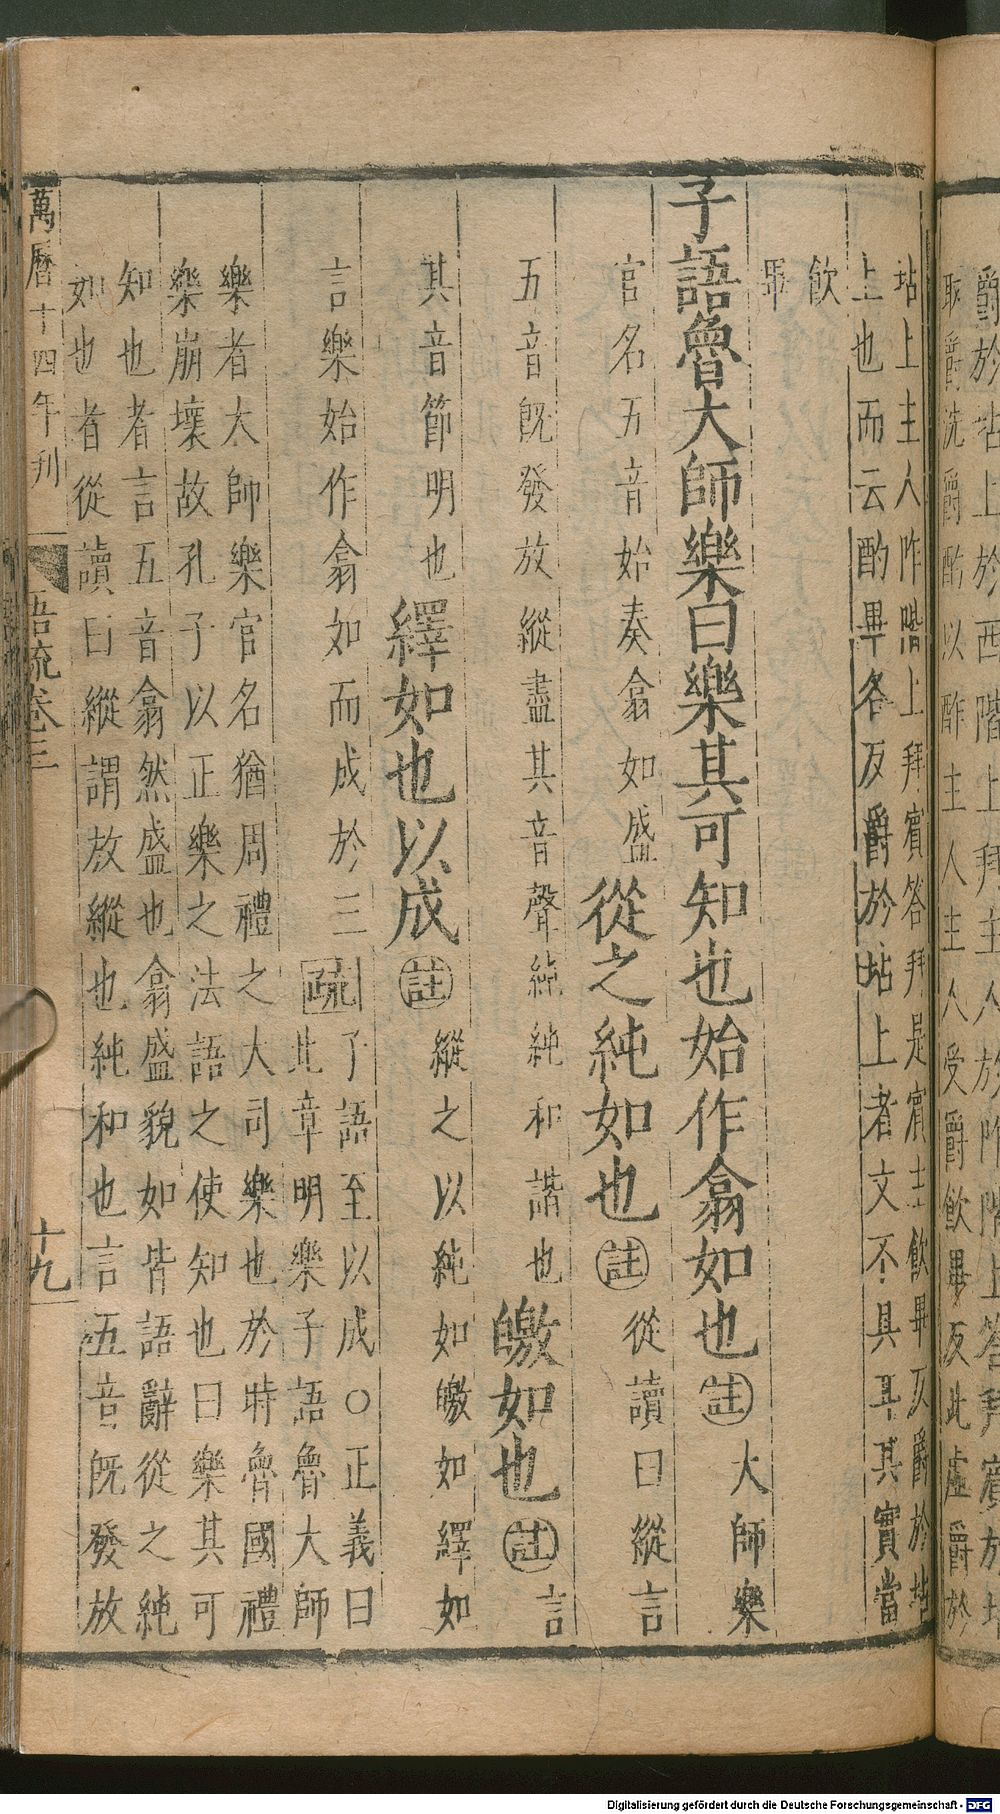 爵於坫上於西階上拜主人於阼階上荅拜賓於坫
取爵洗爵酌以酢主人主人受爵飲畢反此虛爵於
坫上主人阼階上拜賓荅拜是賓主飲畢反爵於坫
上也而云酌畢各反爵於坫上者文不具耳其實當
飲
畢
子語魯大師樂曰樂其可知也始作翕如也註大師樂
官名五音始奏翕如盛從之純如也註從讀曰縱言
五音既發放縱盡其音聲純純和諧也皦如也註言
其音節明也繹如也以成註縱之以純如皦如繹如
言樂始作翕如而成於三疏子語至以成○正義曰
此章明樂子語魯大師
樂者大師樂官名猶周禮之大司樂也於時魯國禮
樂崩壞故孔子以正樂之法語之使知也曰樂其可
知也者言五音翕然盛也翕盛貌如皆語辭從之純
如也者從讀曰縱謂放縱也純和也言五音既發放
萬曆十四年刊 語疏卷三 十九
Digitalisierung gefördert durch die Deutsche Forschungsgemeinschaft - DFG